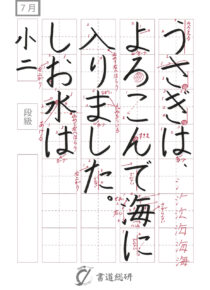 7月
うさぎは、
よろこんで海に
入りました。
しお水は
小二
段級
書道総研